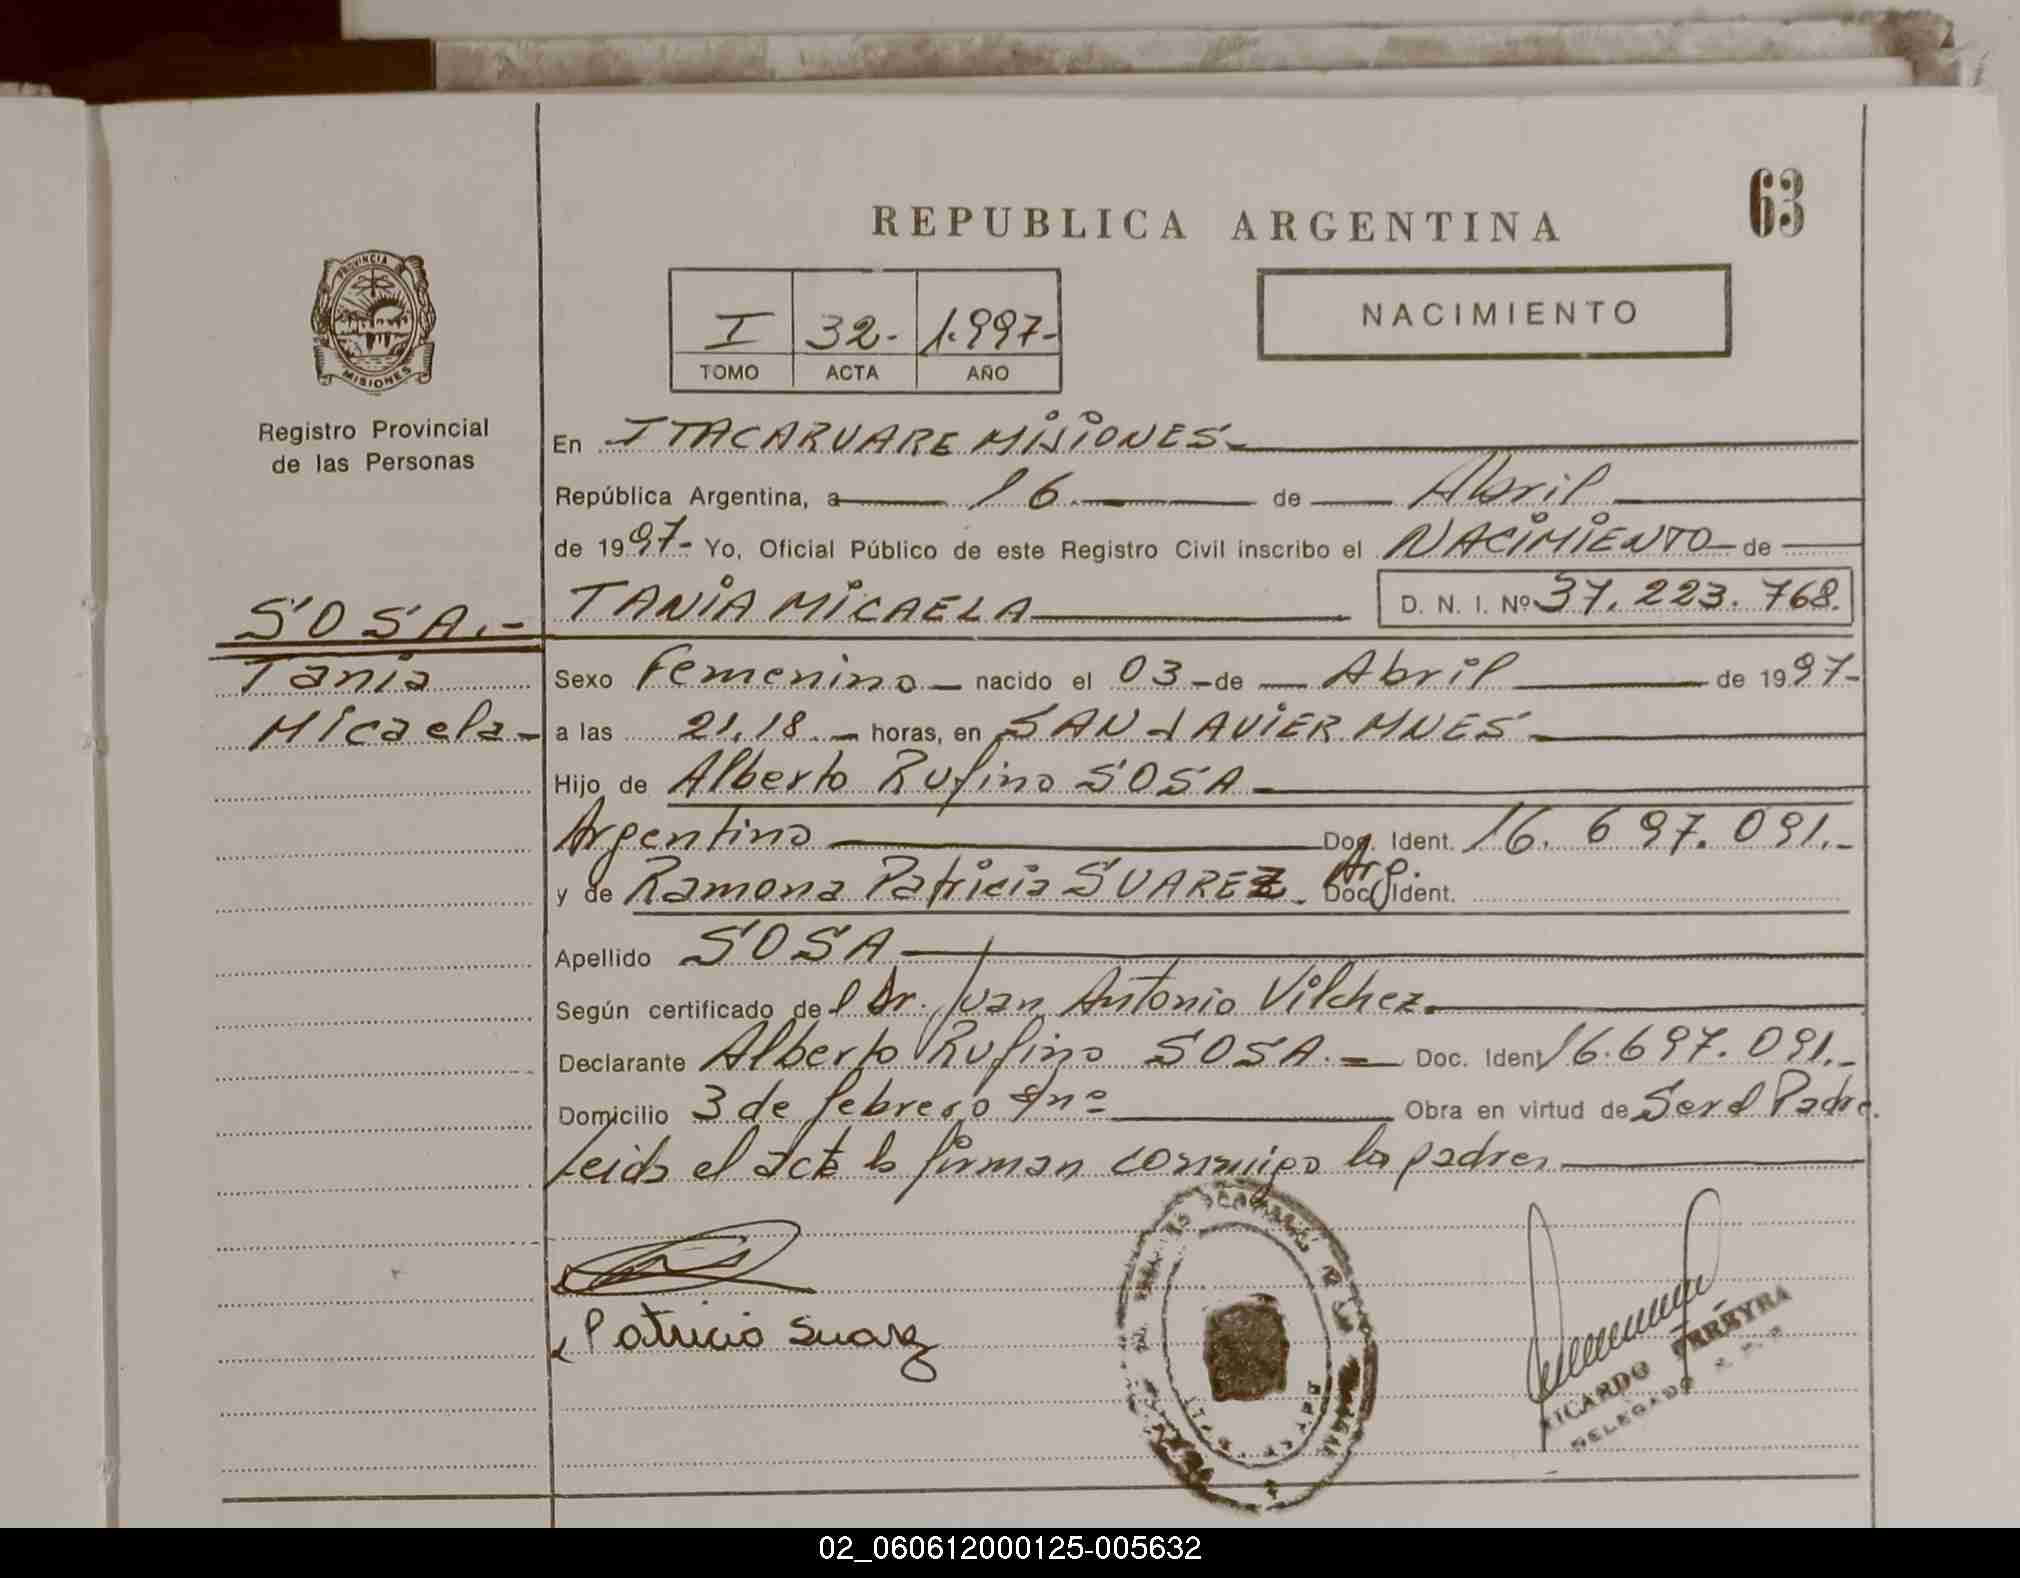 63
REPUBLICA ARGENTINA
NACIMIENTO
I 32- 1.997-
TOMO ACTA AÑO
PROVINCIA
MISIONES
Registro Provincial
de las Personas
SOSA.-
Tania
Micaela-
En ITACARUARE MISIONES-
República Argentina, a 16 de Abril
de 1997- Yo, Oficial Público de este Registro Civil inscribo el NACIMIENTO de
TANIA MICAELA D. N. I. Nº 37.223.768.
Sexo Femenino nacido el 03 de Abril de 1997-
a las 21,18 horas, en SAN JAVIER MNES-
Hijo de Alberto Rufino SOSA
Argentino Doc. Ident. 16.697.091.-
y de Ramona Patricia SUAREZ. Arg. Doc. Ident.
Apellido SOSA
Según certificado del Dr. Juan Antonio Vilchez.
Declarante Alberto Rufino SOSA.- Doc. Ident 16.697.091.-
Domicilio 3 de febrero s/nº Obra en virtud de Ser el Padre.
Leida el acta la firman conmigo los padres
Patricia Suarez
RICARDO PEREYRA
DELEGADO
02_060612000125-005632